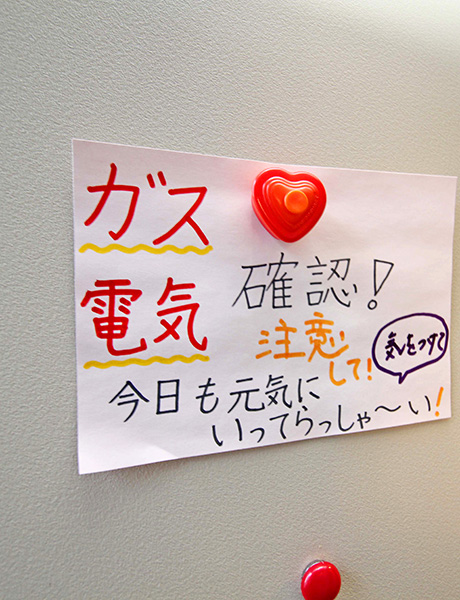 ガス
電気
確認!
注意
して!
気をつけて
今日も元気に
いってらっしゃ〜い!